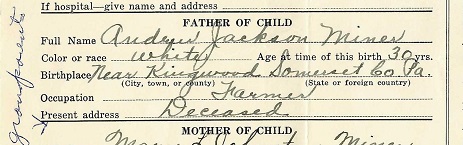 If hospital—give name and address
FATHER OF CHILD
Full Name Andrew Jackson Miner
Color or race White Age at time of this birth 30 yrs.
Birthplace Near Kingwood Somerset Co. Pa.
(City, town, or county) (State or foreign country)
Occupation Farmer
Present address Deceased
MOTHER OF CHILD
Miner
grandparents